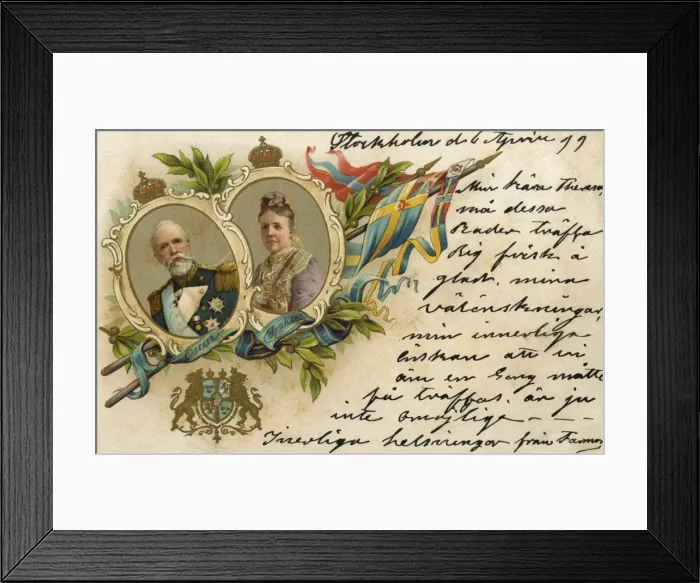 Stockholm d. 6 April 99
Min kära Theresa,
må dessa
Rader träffa
Dig frisk å
glad. mina
välönskningar,
min innerliga
önskan att vi
än en Gång måtte
få träffas. är ju
inte omöjligt - - -
Innerliga helsningar från Farmor
Oscar
Sophia